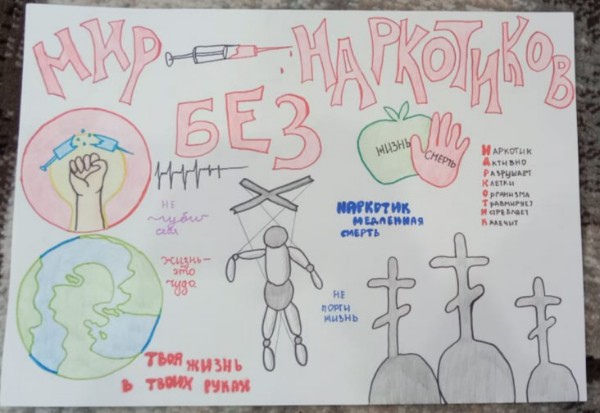 МИР НАРКОТИКОВ
БЕЗ
ЖИЗНЬ
СМЕРТЬ
НАРКОТИК
АКТИВНО
РАЗРУШАЕТ
КЛЕТКИ
ОРГАНИЗМА
ТРАВМИРУЕТ
КАЛЕЧИТ
НЕ
губи
НАРКОТИК
МЕДЛЕННАЯ
СМЕРТЬ
ЖИЗНЬ-
ЭТО
ЧУДО
НЕ
ПОРТИ
ЖИЗНЬ
ТВОЯ ЖИЗНЬ
В ТВОИХ РУКАХ